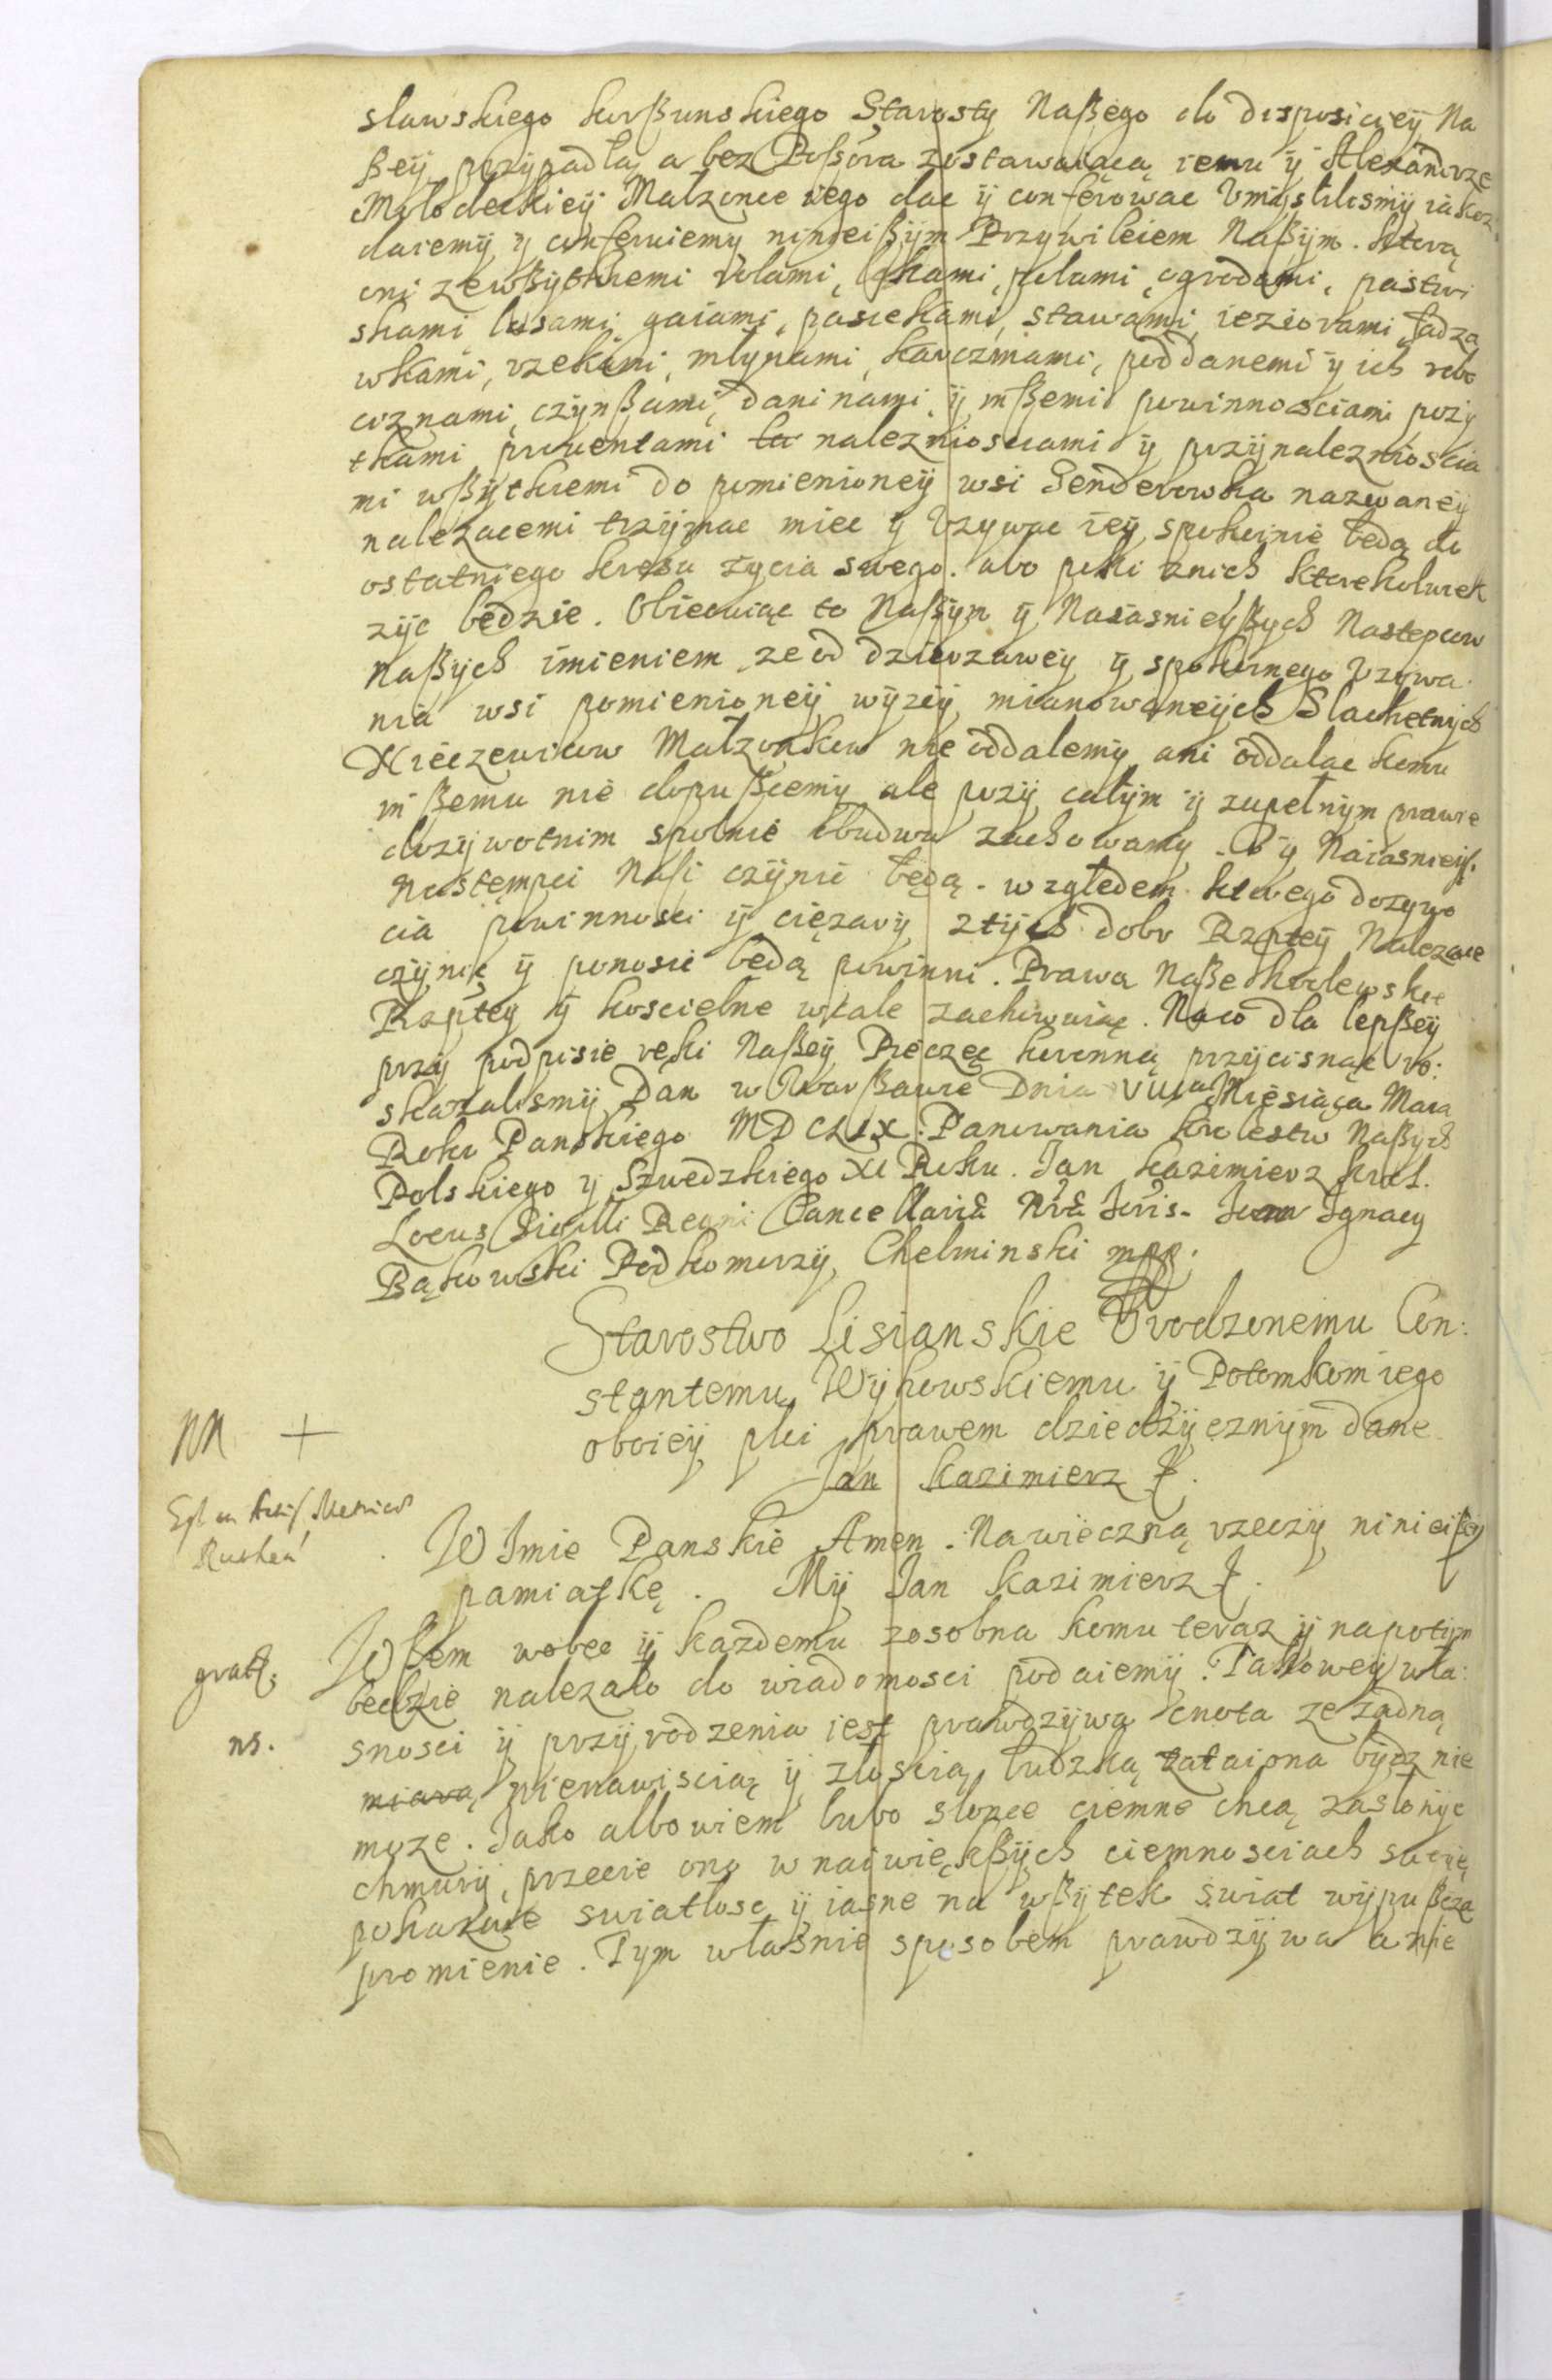 sławskiego korßunskiego Starosty Naßego do disposiciey Na
ßeÿ przypadłą a bez Poßora zostawaiącą iemu ÿ Alexandrze
Mołodeckieÿ Małzonce iego dac ÿ conferowac Vmyslilismÿ iakoz
daiemÿ ÿ conferuiemy ninieißÿm Przywileiem Naßÿm. ktorą
oni zewßÿtkiemi rolami, łąkami, polami, ogrodami, pastwi
skami lasami gaiami, pasiekami, stawami, ieziorami, sadza
wkami, rzekami, młynami, karczmami, poddanemi y ich robo
ciznami, czÿnßami, daninami, ÿ inßemi powinnosciami pozÿ
tkami prowentami nalezniosciami ÿ przÿnaleznioscia
mi wßÿtkiemi do pomienioneÿ wsi Senderowka nazwaneÿ
nalezacemi trzÿmac miec ÿ Vzywac ieÿ spokoinie będą do
ostatniego kresu zycia swego. abo poki znich ktorekolwiek
zÿc będzie. Obiecuiąc to Naßÿm ÿ Naiasnieÿßych Nastepcow
Naßÿch imieniem ze od dzierzaweÿ ÿ spokoinego Vzywa
nia wsi pomienioneÿ wyzeÿ mianowaneÿch Slachetnÿch
Małzonkow nie oddalemÿ ani oddalac komu
inßemu nie dopußciemÿ ale przÿ całÿm ÿ zupełnÿm prawie
dozÿwotnim spolnie obudwu zachowamy. To ÿ Naiasnieÿß.
Nastęmpci Nasi czÿnic będą. względem ktorego dozywo
cia powinnosci ÿ cięzarÿ z tÿch dobr Rzptey Nalezące
czÿnic ÿ ponosic będą powinni. Prawa Naße Krolewskie
Rzptey ÿ koscielne wcale zachowuiąc. Na co dla lepßeÿ
przÿ podpisie ręki Naßeÿ Pieczęc koronną przÿcisnąc ro:
skazalismÿ Dan w Warßawie Dnia VIII Miesiąca Maia
Roku Panskiego MDCLIX. Panowania Krolestw Naßych
Polskiego y Szwedzkiego XI Roku. Jan Kazimierz Krol.
Locus Sigilli Regni Cancellaria Jan Ignacy
Bąkowski Podkomorzÿ Chelminski mpp.
Starostwo Lisianskie Vrodzonemu Con:
stantemu Wÿhowskiemu ÿ Potomkom iego
oboieÿ płci prawem dziedzÿcznÿm dane
Jan Kazimierz
NN +
Ruska
W Imie Panskie Amen. Na wieczną rzeczÿ ninieißeÿ
pamiatkę. Mÿ Jan Kazimierz
grat.
Wßem wobec ÿ kazdemu zosobna komu teraz ÿ napotÿm
będzie nalezało do wiadomosci podaiemÿ. Takoweÿ wła:
ns.
snosci ÿ przÿrodzenia iest prawdzÿwa cnota ze zadną
miarą nienawiscią ÿ złoscią ludzką zataiona bÿdz nie
moze. Jako albowiem lubo słonce ciemne chcą zasłonÿc
chmurÿ, przecie ono w naiwiękßÿch ciemnosciach swoię
pokazuie swiatłosc ÿ iasne na wßÿtek swiat wÿpußcza
promienie. Tym własnie sposobem prawdzÿwa a nie